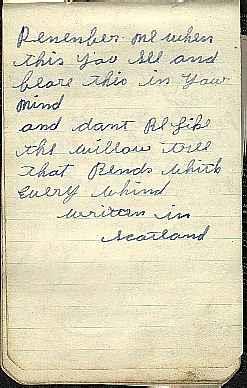 Remember me when
this you see and
beare this in your
mind
and dant Be like
the willow tree
that Bends which
Every whind
writen in
Scotland